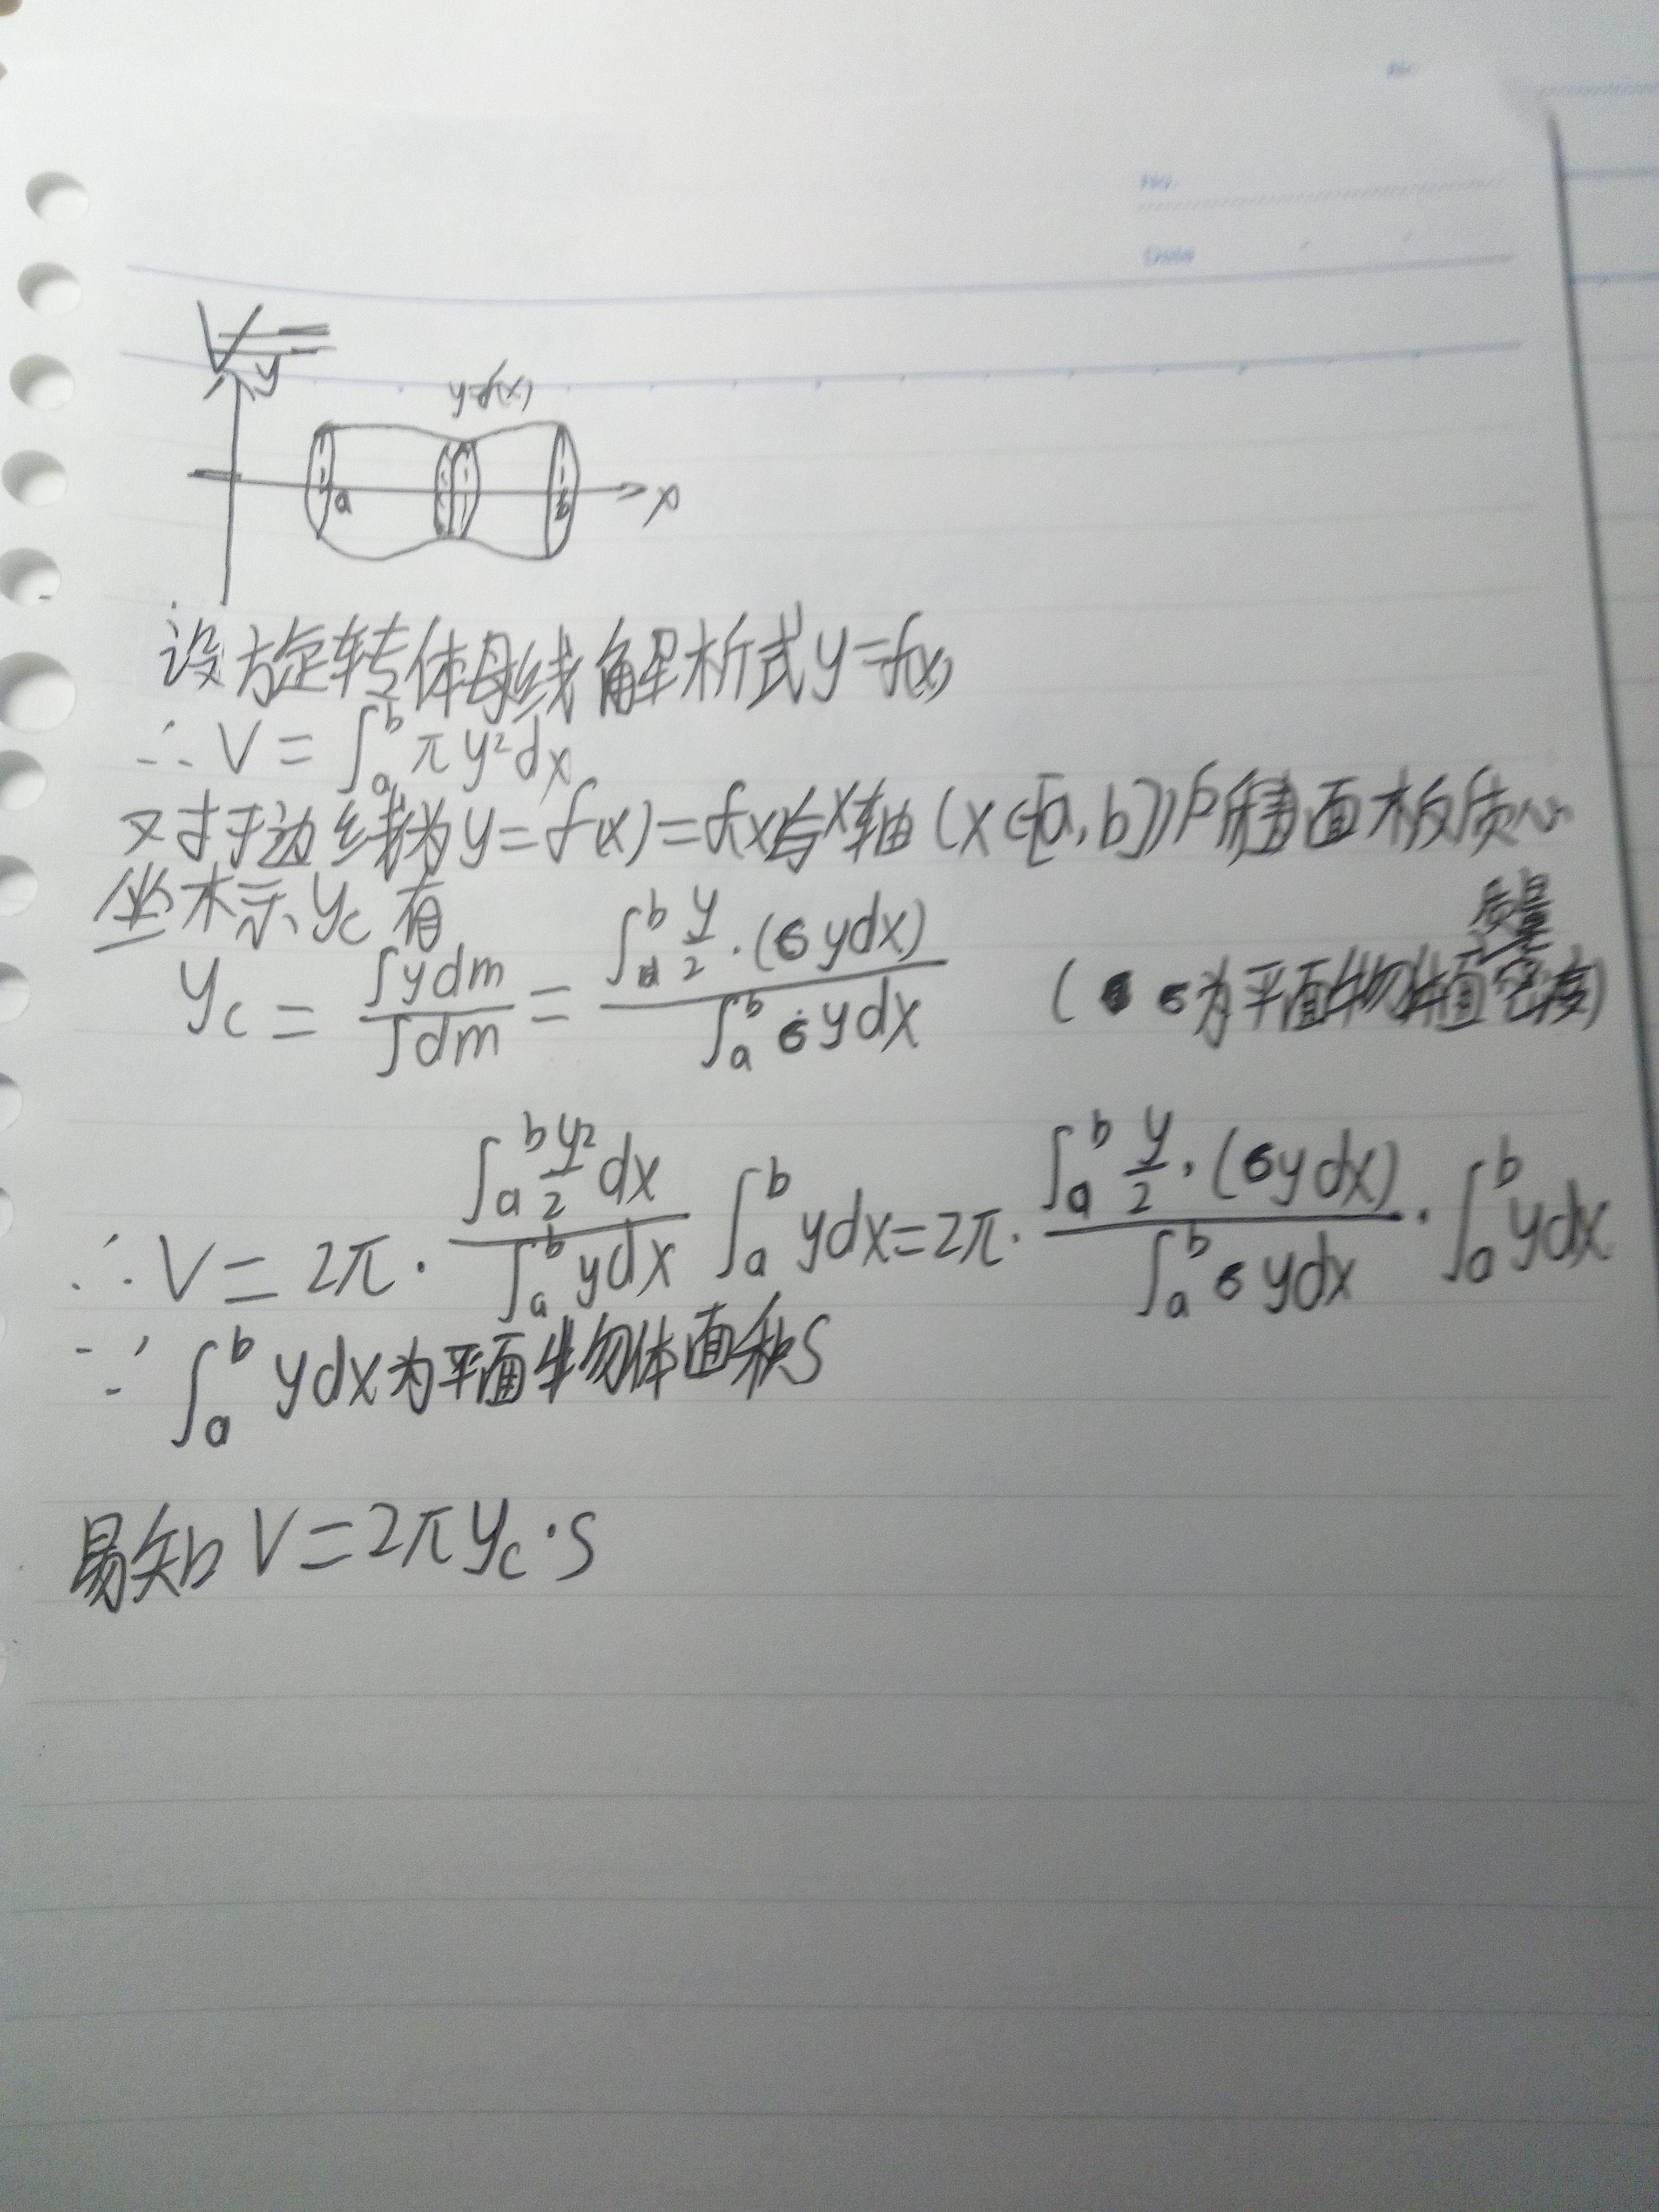 No.
No.
Date
V=
y
y=f(x)
a
b
x
设旋转体母线解析式y=f(x)
∴ V = ∫_a^b πy²dx
又对于边线为y=f(x)=f(x)与x轴(x∈[a,b])所 面木板质心
坐标y_c有
y_c = ∫ydm / ∫dm = ∫_a^b y/2·(σydx) / ∫_a^b σydx (σ为平面物体质量密度)
∴ V = 2π· ∫_a^b y²/2 dx / ∫_a^b ydx ∫_a^b ydx = 2π· ∫_a^b y/2·(σydx) / ∫_a^b σydx · ∫_a^b ydx
∵ ∫_a^b ydx为平面物体面积S
易知 V=2πy_c·S